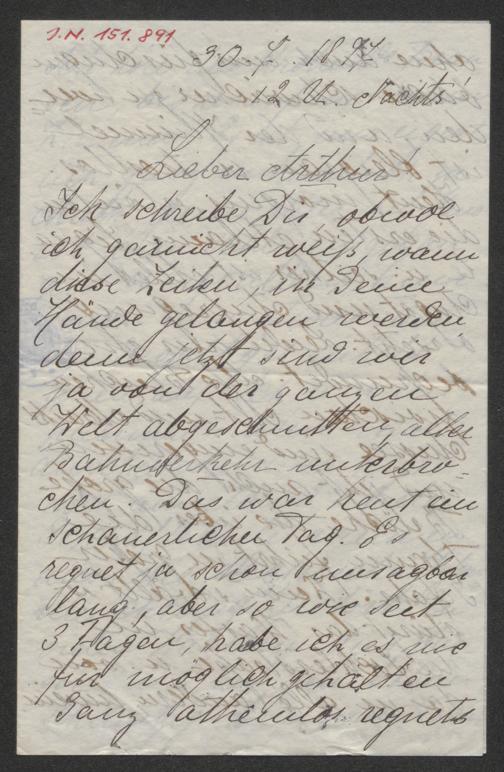 J.N. 151.891
30.7. 1897
12 U. Nachts
Lieber Arthur!
Ich schreibe Dir obwol
ich garnicht weiß, wann
diese Zeilen, in Deine
Hände gelangen werden
denn jetzt sind wir
ja von der ganzen
Welt abgeschnitten, aller
Bahnverkehr unterbro-
chen. Das war heut ein
schauerlicher Tag. Es
regnet ja schon unsagbar
lang, aber so wie seit
3 Tagen, habe ich es nie
für möglich gehalten
Ganz athemlos regnets